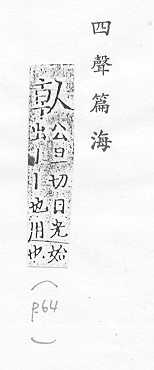 四聲篇海
公旦切日光始
出丨丨也用也
(P.64)